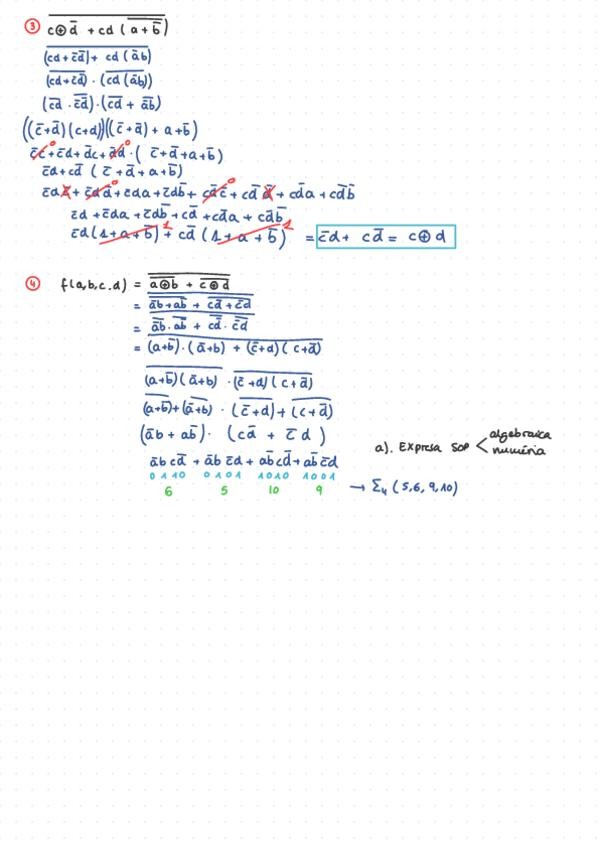 ③ \overline{c⊕\overline{d} + cd (\overline{a+\overline{b}})}
\overline{(cd+\overline{c}\overline{d}) + cd (\overline{a}b)}
\overline{(cd+\overline{c}\overline{d})} · \overline{(cd(\overline{a}b))}
(\overline{cd} · \overline{\overline{c}\overline{d}})·(\overline{cd} + \overline{\overline{a}b})
((\overline{c}+\overline{d})(c+d))((\overline{c}+\overline{d}) + a+\overline{b})
\overline{c}c⁰+\overline{c}d+\overline{d}c+\overline{d}d⁰·( \overline{c}+\overline{d}+a+\overline{b})
\overline{c}d+c\overline{d} ( \overline{c}+\overline{d}+a+\overline{b})
\overline{c}d\overline{c}+\overline{c}d\overline{d}⁰+\overline{c}da+\overline{c}d\overline{b}+c\overline{d}\overline{c}⁰+c\overline{d}\overline{d}+c\overline{d}a+c\overline{d}\overline{b}
\overline{c}d+\overline{c}da+\overline{c}d\overline{b}+c\overline{d}+c\overline{d}a+c\overline{d}\overline{b}
\overline{c}d(1+a+\overline{b})¹+c\overline{d}(1+a+\overline{b})¹ = \overline{c}d+ c\overline{d} = c⊕d
④ f(a,b,c.d) = \overline{\overline{a⊕b} + \overline{c⊕d}}
= \overline{\overline{\overline{a}b+a\overline{b}} + \overline{c\overline{d}+\overline{c}d}}
= \overline{\overline{\overline{a}b}·\overline{a\overline{b}} + \overline{c\overline{d}}·\overline{\overline{c}d}}
= \overline{(a+\overline{b})·(\overline{a}+b) + (\overline{c}+d)(c+\overline{d})}
\overline{(a+\overline{b})(\overline{a}+b)} · \overline{(\overline{c}+d)(c+\overline{d})}
\overline{(a+\overline{b})}+\overline{(\overline{a}+b)} · \overline{(\overline{c}+d)}+\overline{(c+\overline{d})}
(\overline{a}b + a\overline{b})· (c\overline{d} + \overline{c}d)
a). Expresa SOP < algebraica
numèria
\overline{a}bc\overline{d} + \overline{a}b\overline{c}d + a\overline{b}c\overline{d} + a\overline{b}\overline{c}d
0110 0101 1010 1001
6 5 10 9 → Σ₄ (5,6,9,10)